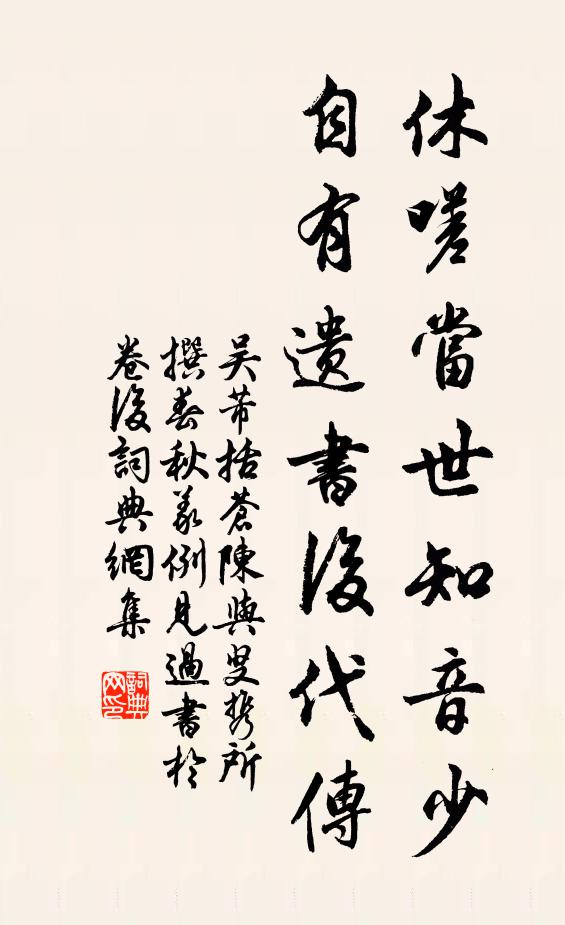 休嗟當世知音少
自有遺書後代傳
吴芾括蒼陳與叟携所
撰春秋義例見過書於
卷後詞典網集
詞典網印